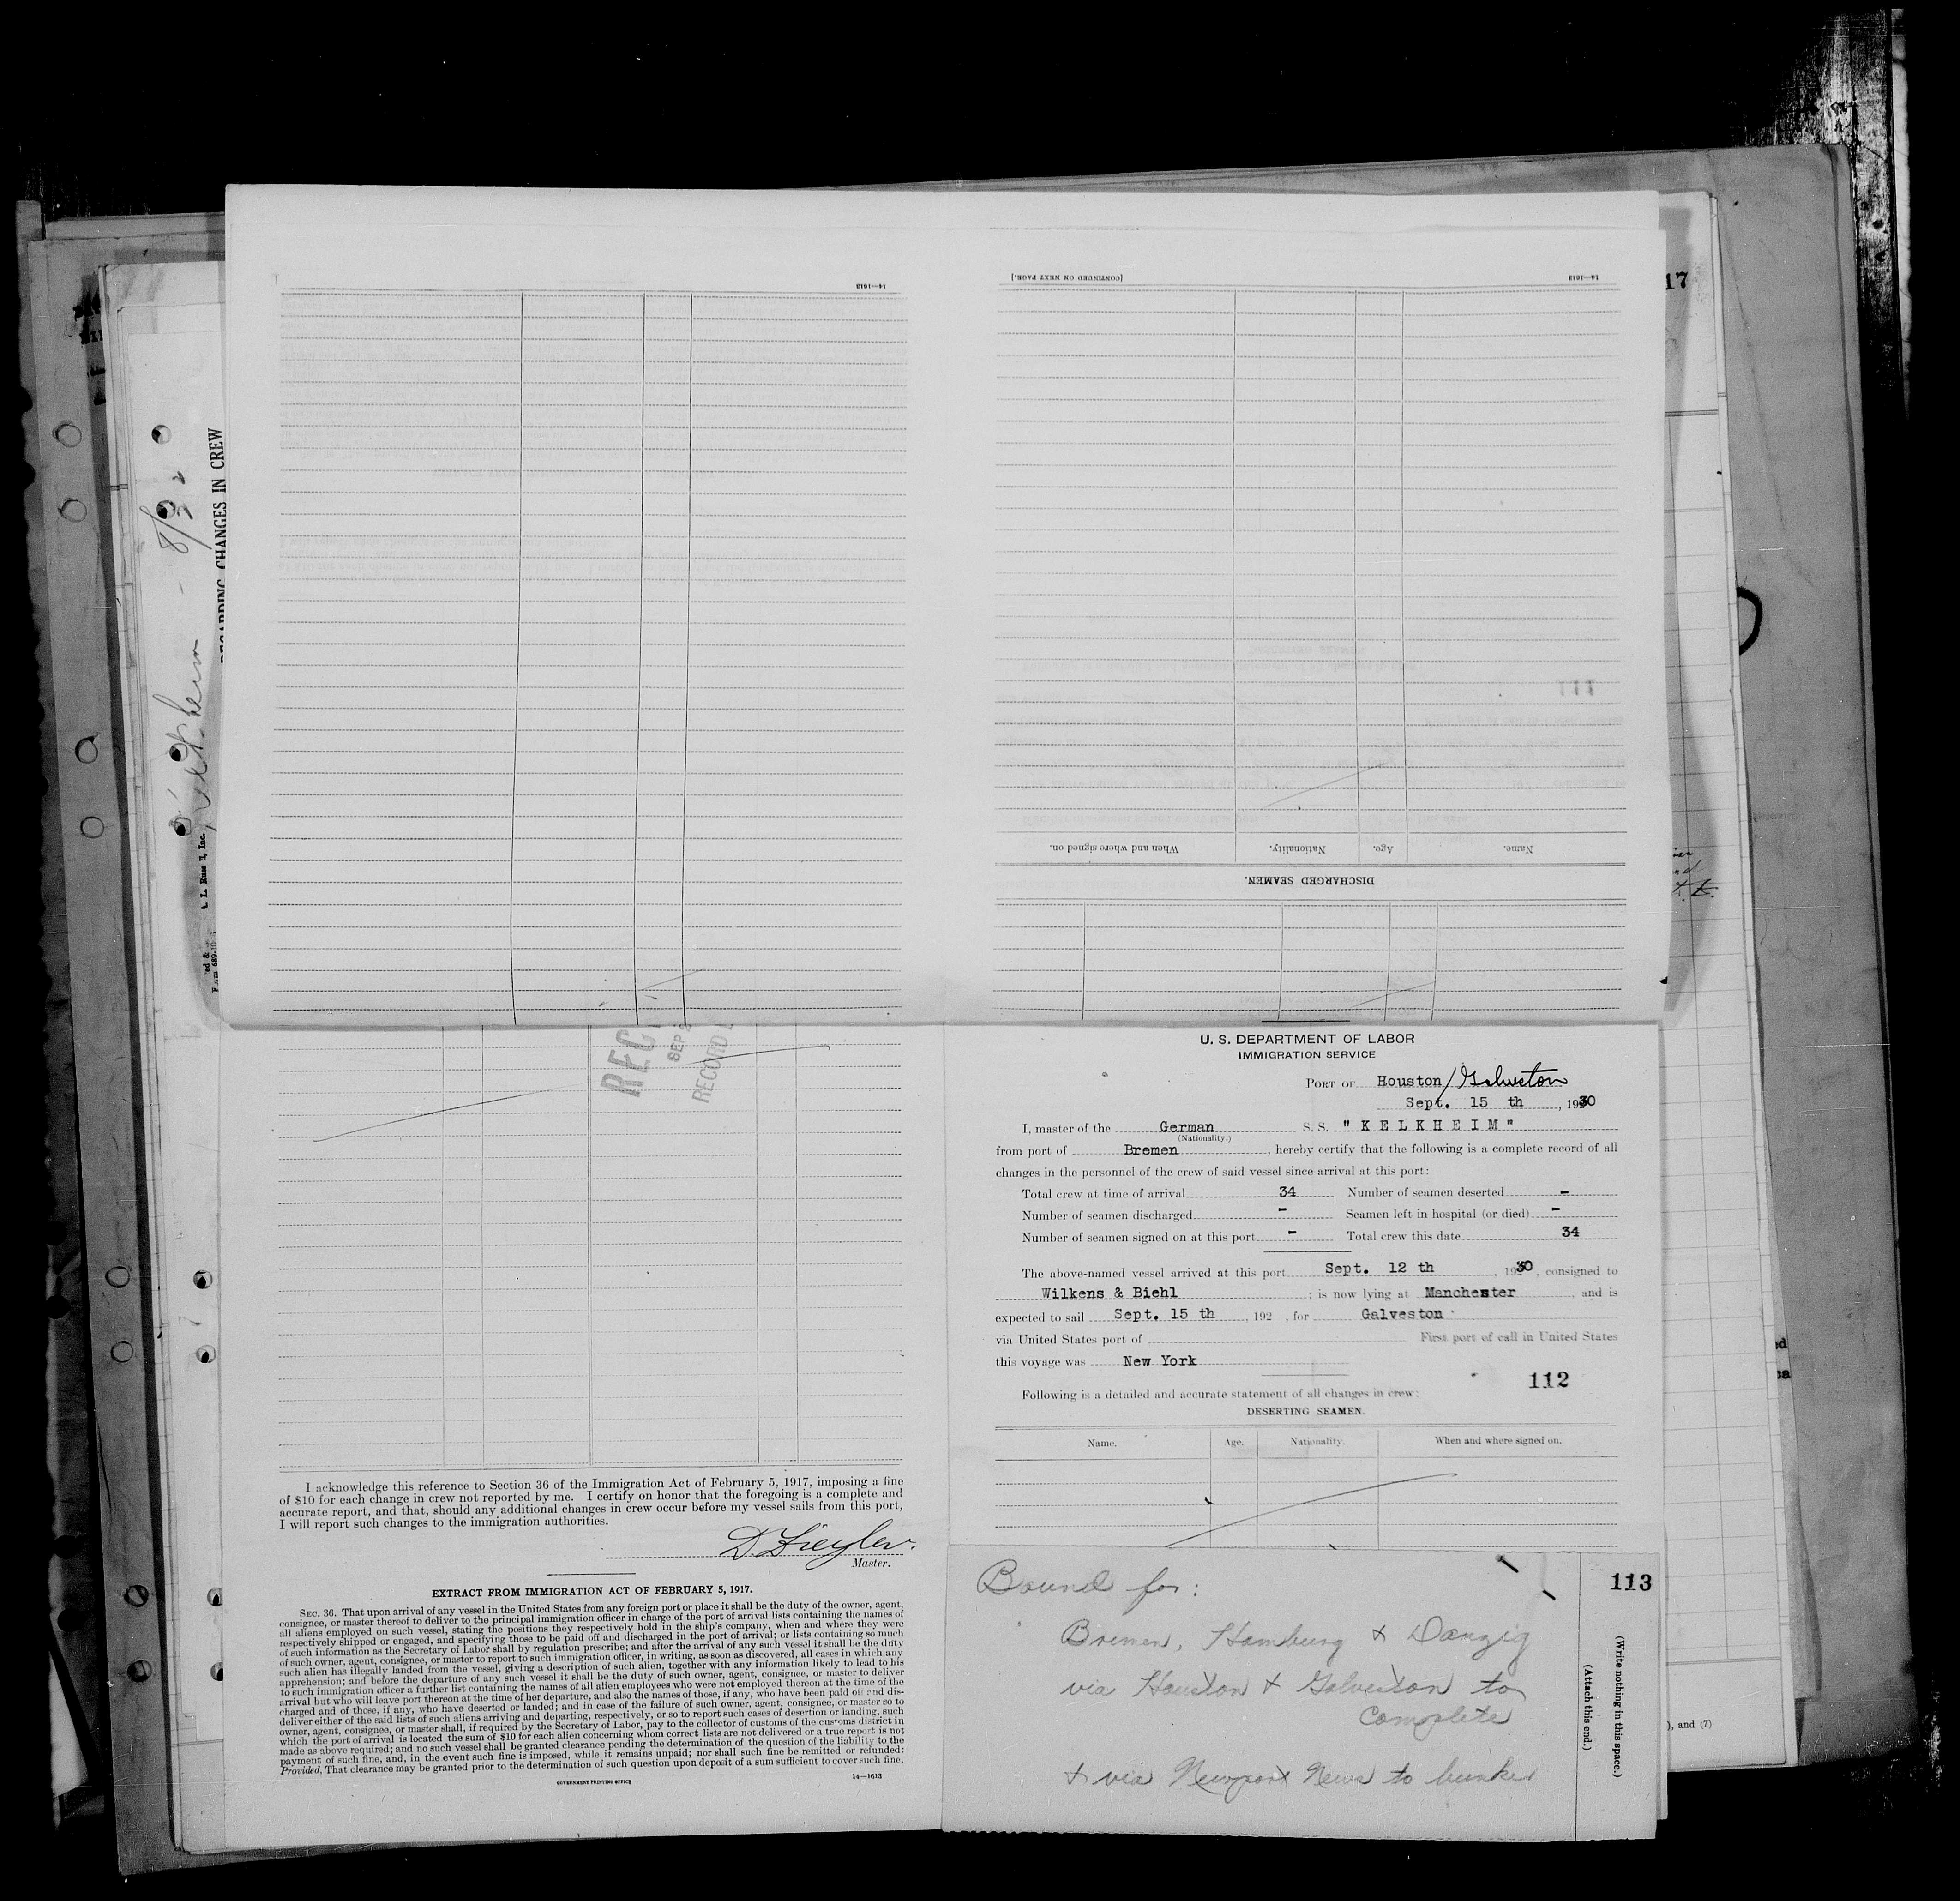 17
8/30
REGARDING CHANGES IN CREW
Kelkheim
[CONTINUED ON NEXT PAGE.]
14—1613
14—1613
111
Name.
Age.
Nationality.
When and where signed on.
DISCHARGED SEAMEN.
SEP 2
RECORD
U. S. DEPARTMENT OF LABOR
IMMIGRATION SERVICE
PORT OF Houston/Galveston
Sept. 15 th, 1930
I, master of the German S. S. "KELKHEIM"
(Nationality.)
from port of Bremen, hereby certify that the following is a complete record of all
changes in the personnel of the crew of said vessel since arrival at this port:
Total crew at time of arrival 34 Number of seamen deserted -
Number of seamen discharged - Seamen left in hospital (or died) -
Number of seamen signed on at this port - Total crew this date 34
The above-named vessel arrived at this port Sept. 12 th, 1930, consigned to
Wilkens & Biehl; is now lying at Manchester, and is
expected to sail Sept. 15 th, 192 , for Galveston
via United States port of First port of call in United States
this voyage was New York
112
Following is a detailed and accurate statement of all changes in crew:
DESERTING SEAMEN.
Name. Age. Nationality. When and where signed on.
I acknowledge this reference to Section 36 of the Immigration Act of February 5, 1917, imposing a fine
of $10 for each change in crew not reported by me. I certify on honor that the foregoing is a complete and
accurate report, and that, should any additional changes in crew occur before my vessel sails from this port,
I will report such changes to the immigration authorities.
Master.
EXTRACT FROM IMMIGRATION ACT OF FEBRUARY 5, 1917.
SEC. 36. That upon arrival of any vessel in the United States from any foreign port or place it shall be the duty of the owner, agent,
consignee, or master thereof to deliver to the principal immigration officer in charge of the port of arrival lists containing the names of
all aliens employed on such vessel, stating the positions they respectively hold in the ship's company, when and where they were
respectively shipped or engaged, and specifying those to be paid off and discharged in the port of arrival; or lists containing so much
of such information as the Secretary of Labor shall by regulation prescribe; and after the arrival of any such vessel it shall be the duty
of such owner, agent, consignee, or master to report to such immigration officer, in writing, as soon as discovered, all cases in which any
such alien has illegally landed from the vessel, giving a description of such alien, together with any information likely to lead to his
apprehension; and before the departure of any such vessel it shall be the duty of such owner, agent, consignee, or master to deliver
to such immigration officer a further list containing the names of all alien employees who were not employed thereon at the time of the
arrival but who will leave port thereon at the time of her departure, and also the names of those, if any, who have been paid off and dis-
charged and of those, if any, who have deserted or landed; and in case of the failure of such owner, agent, consignee, or master so to
deliver either of the said lists of such aliens arriving and departing, respectively, or so to report such cases of desertion or landing, such
owner, agent, consignee, or master shall, if required by the Secretary of Labor, pay to the collector of customs of the customs district in
which the port of arrival is located the sum of $10 for each alien concerning whom correct lists are not delivered or a true report is not
made as above required; and no such vessel shall be granted clearance pending the determination of the question of the liability to the
payment of such fine, and, in the event such fine is imposed, while it remains unpaid; nor shall such fine be remitted or refunded:
Provided, That clearance may be granted prior to the determination of such question upon deposit of a sum sufficient to cover such fine.
GOVERNMENT PRINTING OFFICE 14—1613
Bound for:
Bremen, Hamburg & Danzig
via Houston & Galveston to
complete
& via Newport News to bunker
113
(Write nothing in this space.)
(Attach this end.)
), and (7)